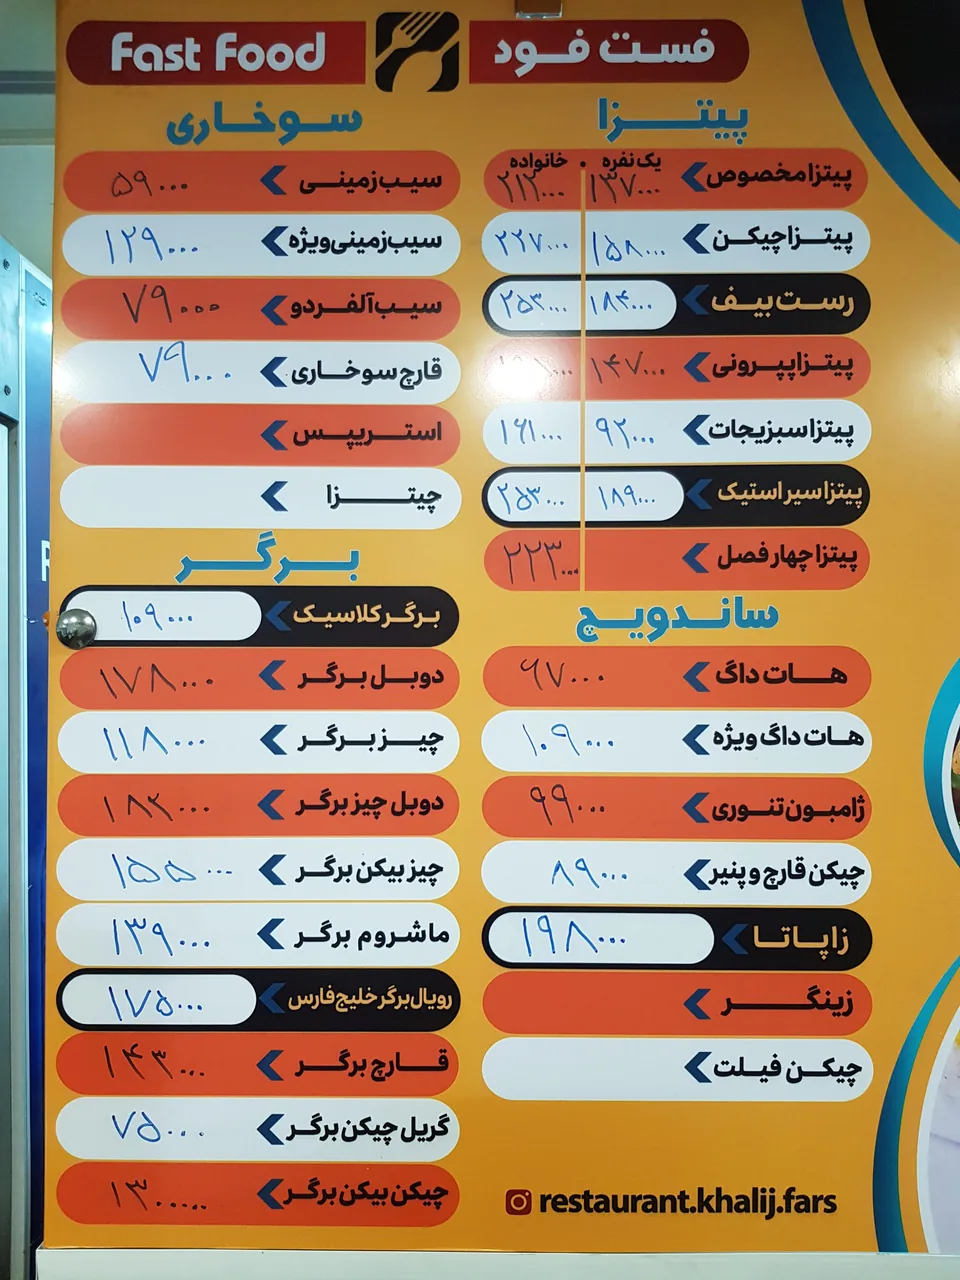 Fast Food
فست فود
پیتزا
یک نفره • خانواده
پیتزا مخصوص ۱۳۷۰۰۰ ۲۱۲۰۰۰
پیتزا چیکن ۱۵۸۰۰۰ ۲۲۷۰۰۰
رست بیف ۱۸۴۰۰۰ ۲۵۳۰۰۰
پیتزا پپرونی ۱۴۷۰۰۰
پیتزا سبزیجات ۹۲۰۰۰ ۱۶۱۰۰۰
پیتزا سیر استیک ۱۸۹۰۰۰ ۲۵۳۰۰۰
پیتزا چهار فصل ۲۲۳۰۰۰
ساندویچ
هات داگ ۶۷۰۰۰
هات داگ ویژه ۱۰۹۰۰۰
ژامبون تنوری ۹۹۰۰۰
چیکن قارچ و پنیر ۸۹۰۰۰
زاپاتا ۱۹۸۰۰۰
زینگر
چیکن فیلت
restaurant.khalij.fars
سوخاری
سیب زمینی ۵۹۰۰۰
سیب زمینی ویژه ۱۲۹۰۰۰
سیب آلفردو ۷۹۰۰۰
قارچ سوخاری ۷۹۰۰۰
استریپس
چیتزا
برگر
برگر کلاسیک ۱۰۹۰۰۰
دوبل برگر ۱۷۸۰۰۰
چیز برگر ۱۱۸۰۰۰
دوبل چیز برگر ۱۸۲۰۰۰
چیز بیکن برگر ۱۵۵۰۰۰
ماشروم برگر ۱۳۹۰۰۰
رویال برگر خلیج فارس ۱۷۵۰۰۰
قارچ برگر ۱۴۳۰۰۰
گریل چیکن برگر ۷۵۰۰۰
چیکن بیکن برگر